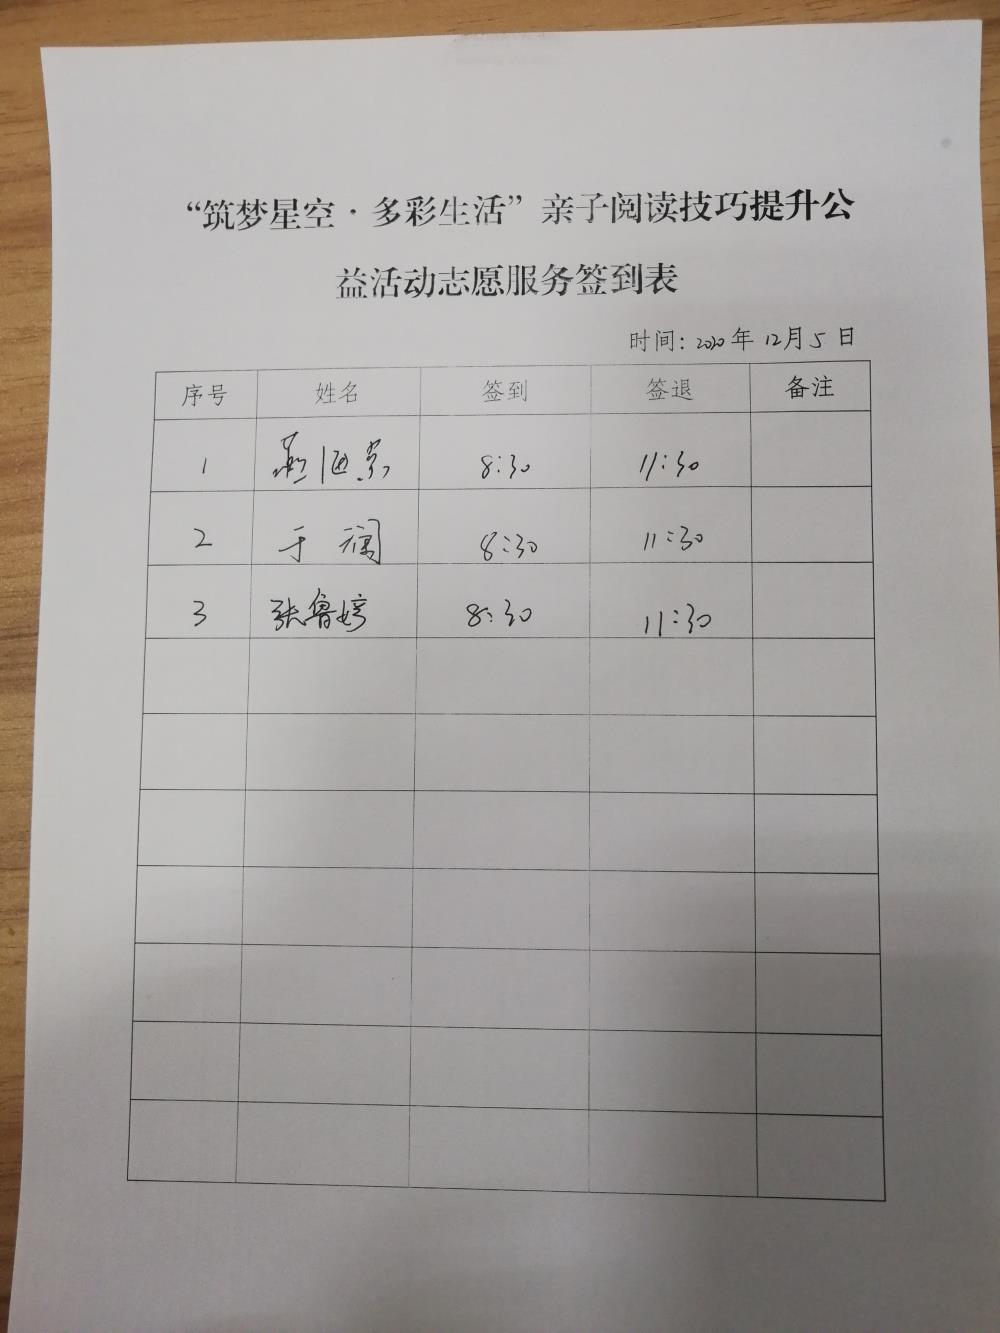 “筑梦星空·多彩生活”亲子阅读技巧提升公
益活动志愿服务签到表
时间：2020年12月5日
序号 姓名 签到 签退 备注
1 8:30 11:30
2 于 8:30 11:30
3 张鲁婷 8:30 11:30